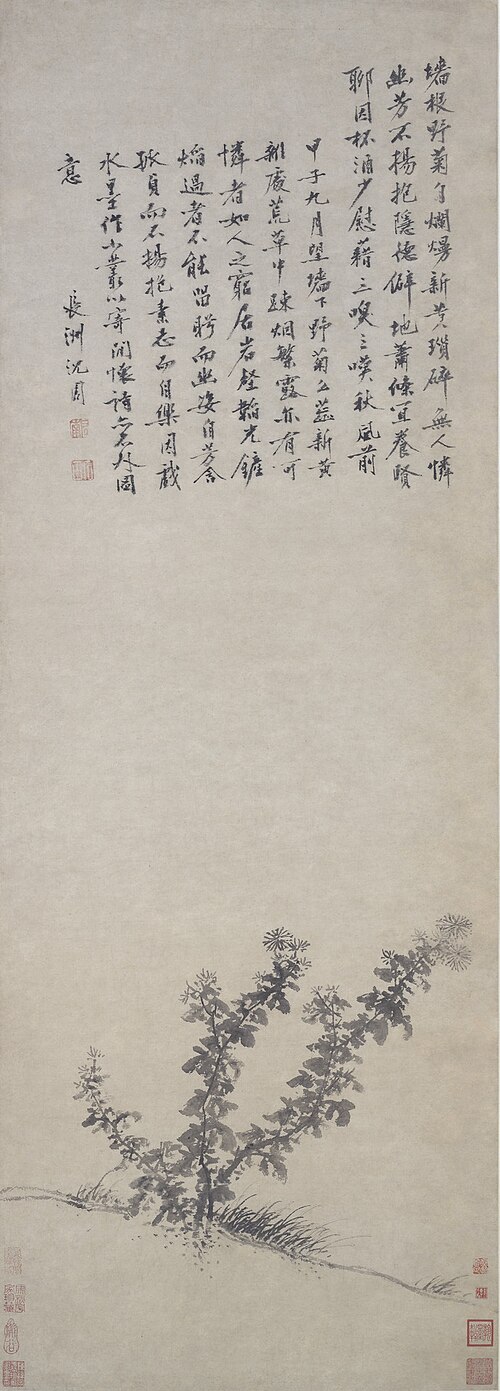 墻根野菊自爛熳新黃瑣碎無人憐
幽芳不揚抱隱德僻地蕭條宜養賢
聊因杯酒少慰藉三嗅三嘆秋風前
甲子九月望墻下野菊新黃
雜處荒草中踈烟繁露亦有可
憐者如人之窮居岩壑韜光鏟
焰過者不能留盼而幽姿自芳含
貞而不揚抱素志而自樂因戲
水墨作小叢以寄閒懷詩亦不外圖
意
長洲沈周